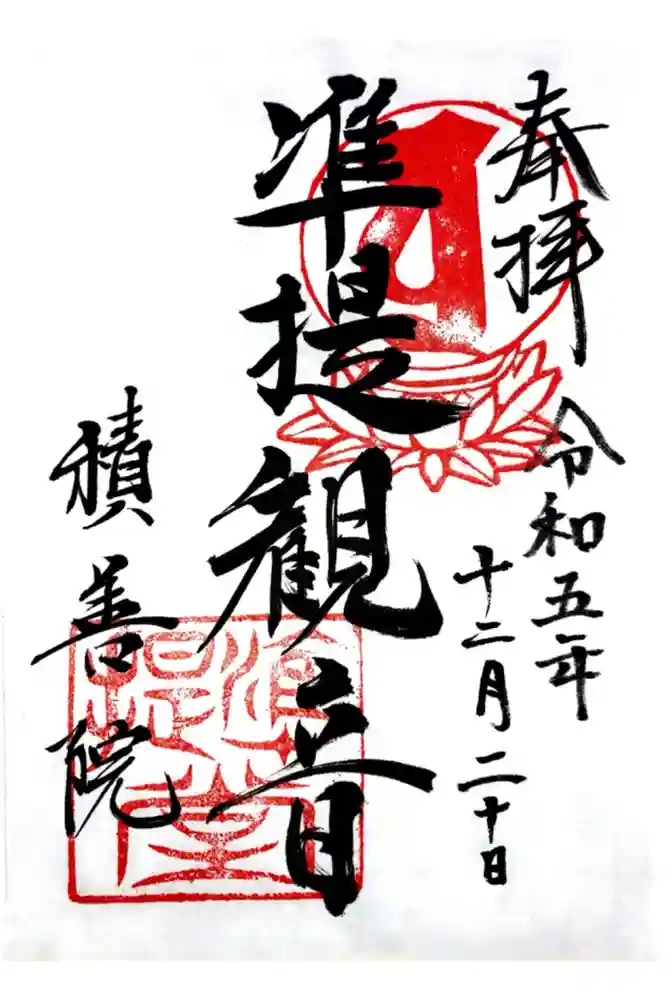 奉拝
令和五年
十二月二十日
准提観音
積善院
准提堂